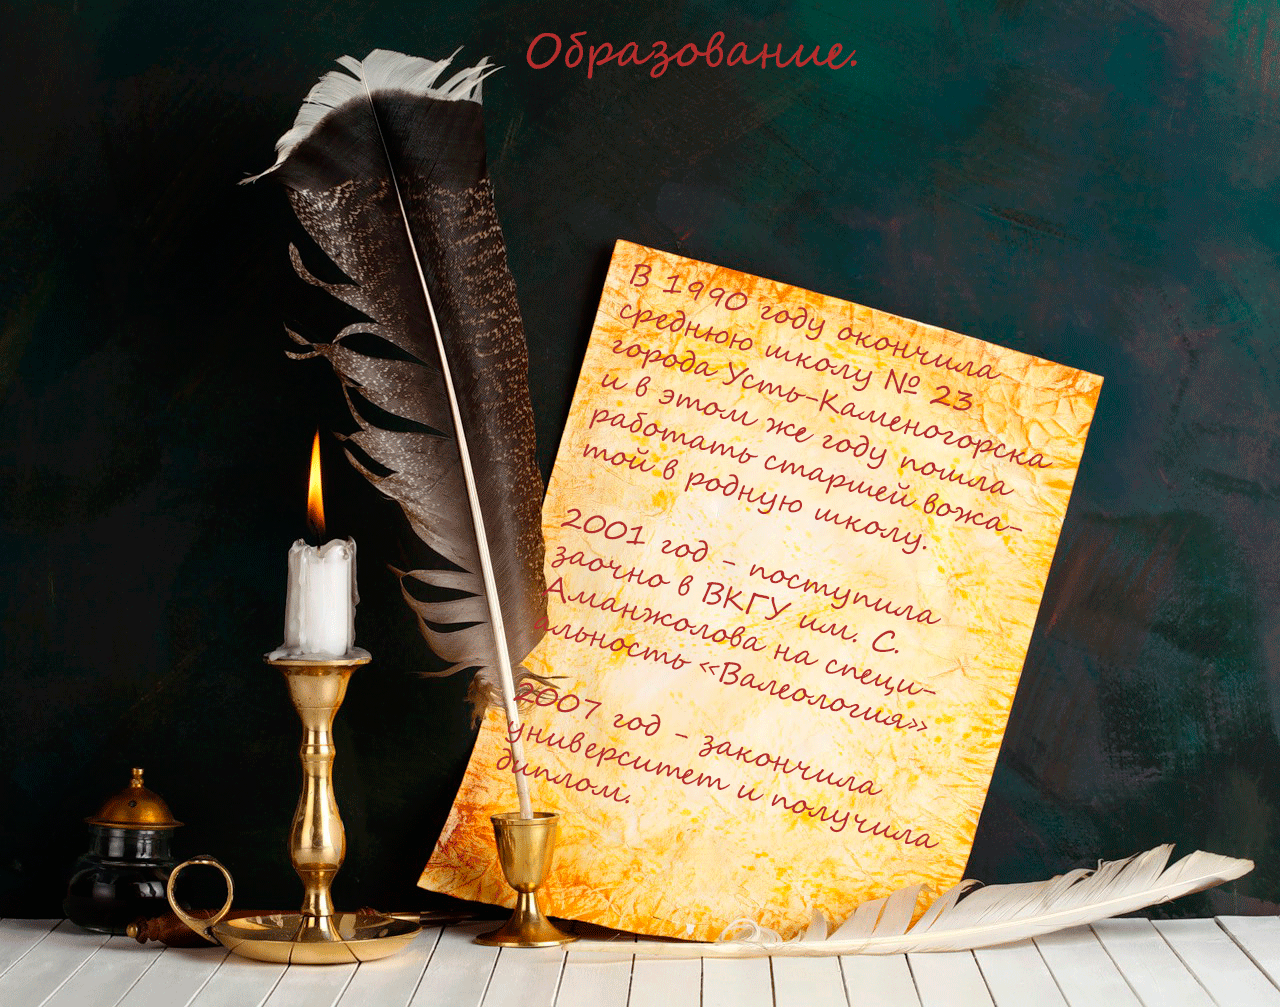 Образование.
В 1990 году окончила
среднюю школу № 23
города Усть-Каменогорска
и в этом же году пошла
работать старшей вожа-
той в родную школу.
2001 год - поступила
заочно в ВКГУ им. С.
Аманжолова на специ-
альность «Валеология»
2007 год - закончила
университет и получила
диплом.